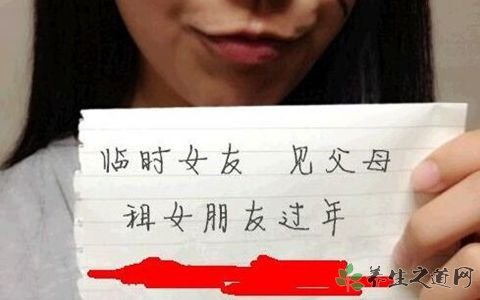 临时女友 见父母
租女朋友过年
养生之道网